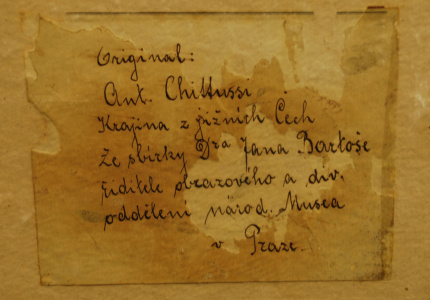 Original:
Ant. Chittussi
Krajina z jižních Čech
Ze sbírky Dra Jana Bartoše
ředitele obrazového a div.
oddělení národ. Musea
v Praze.